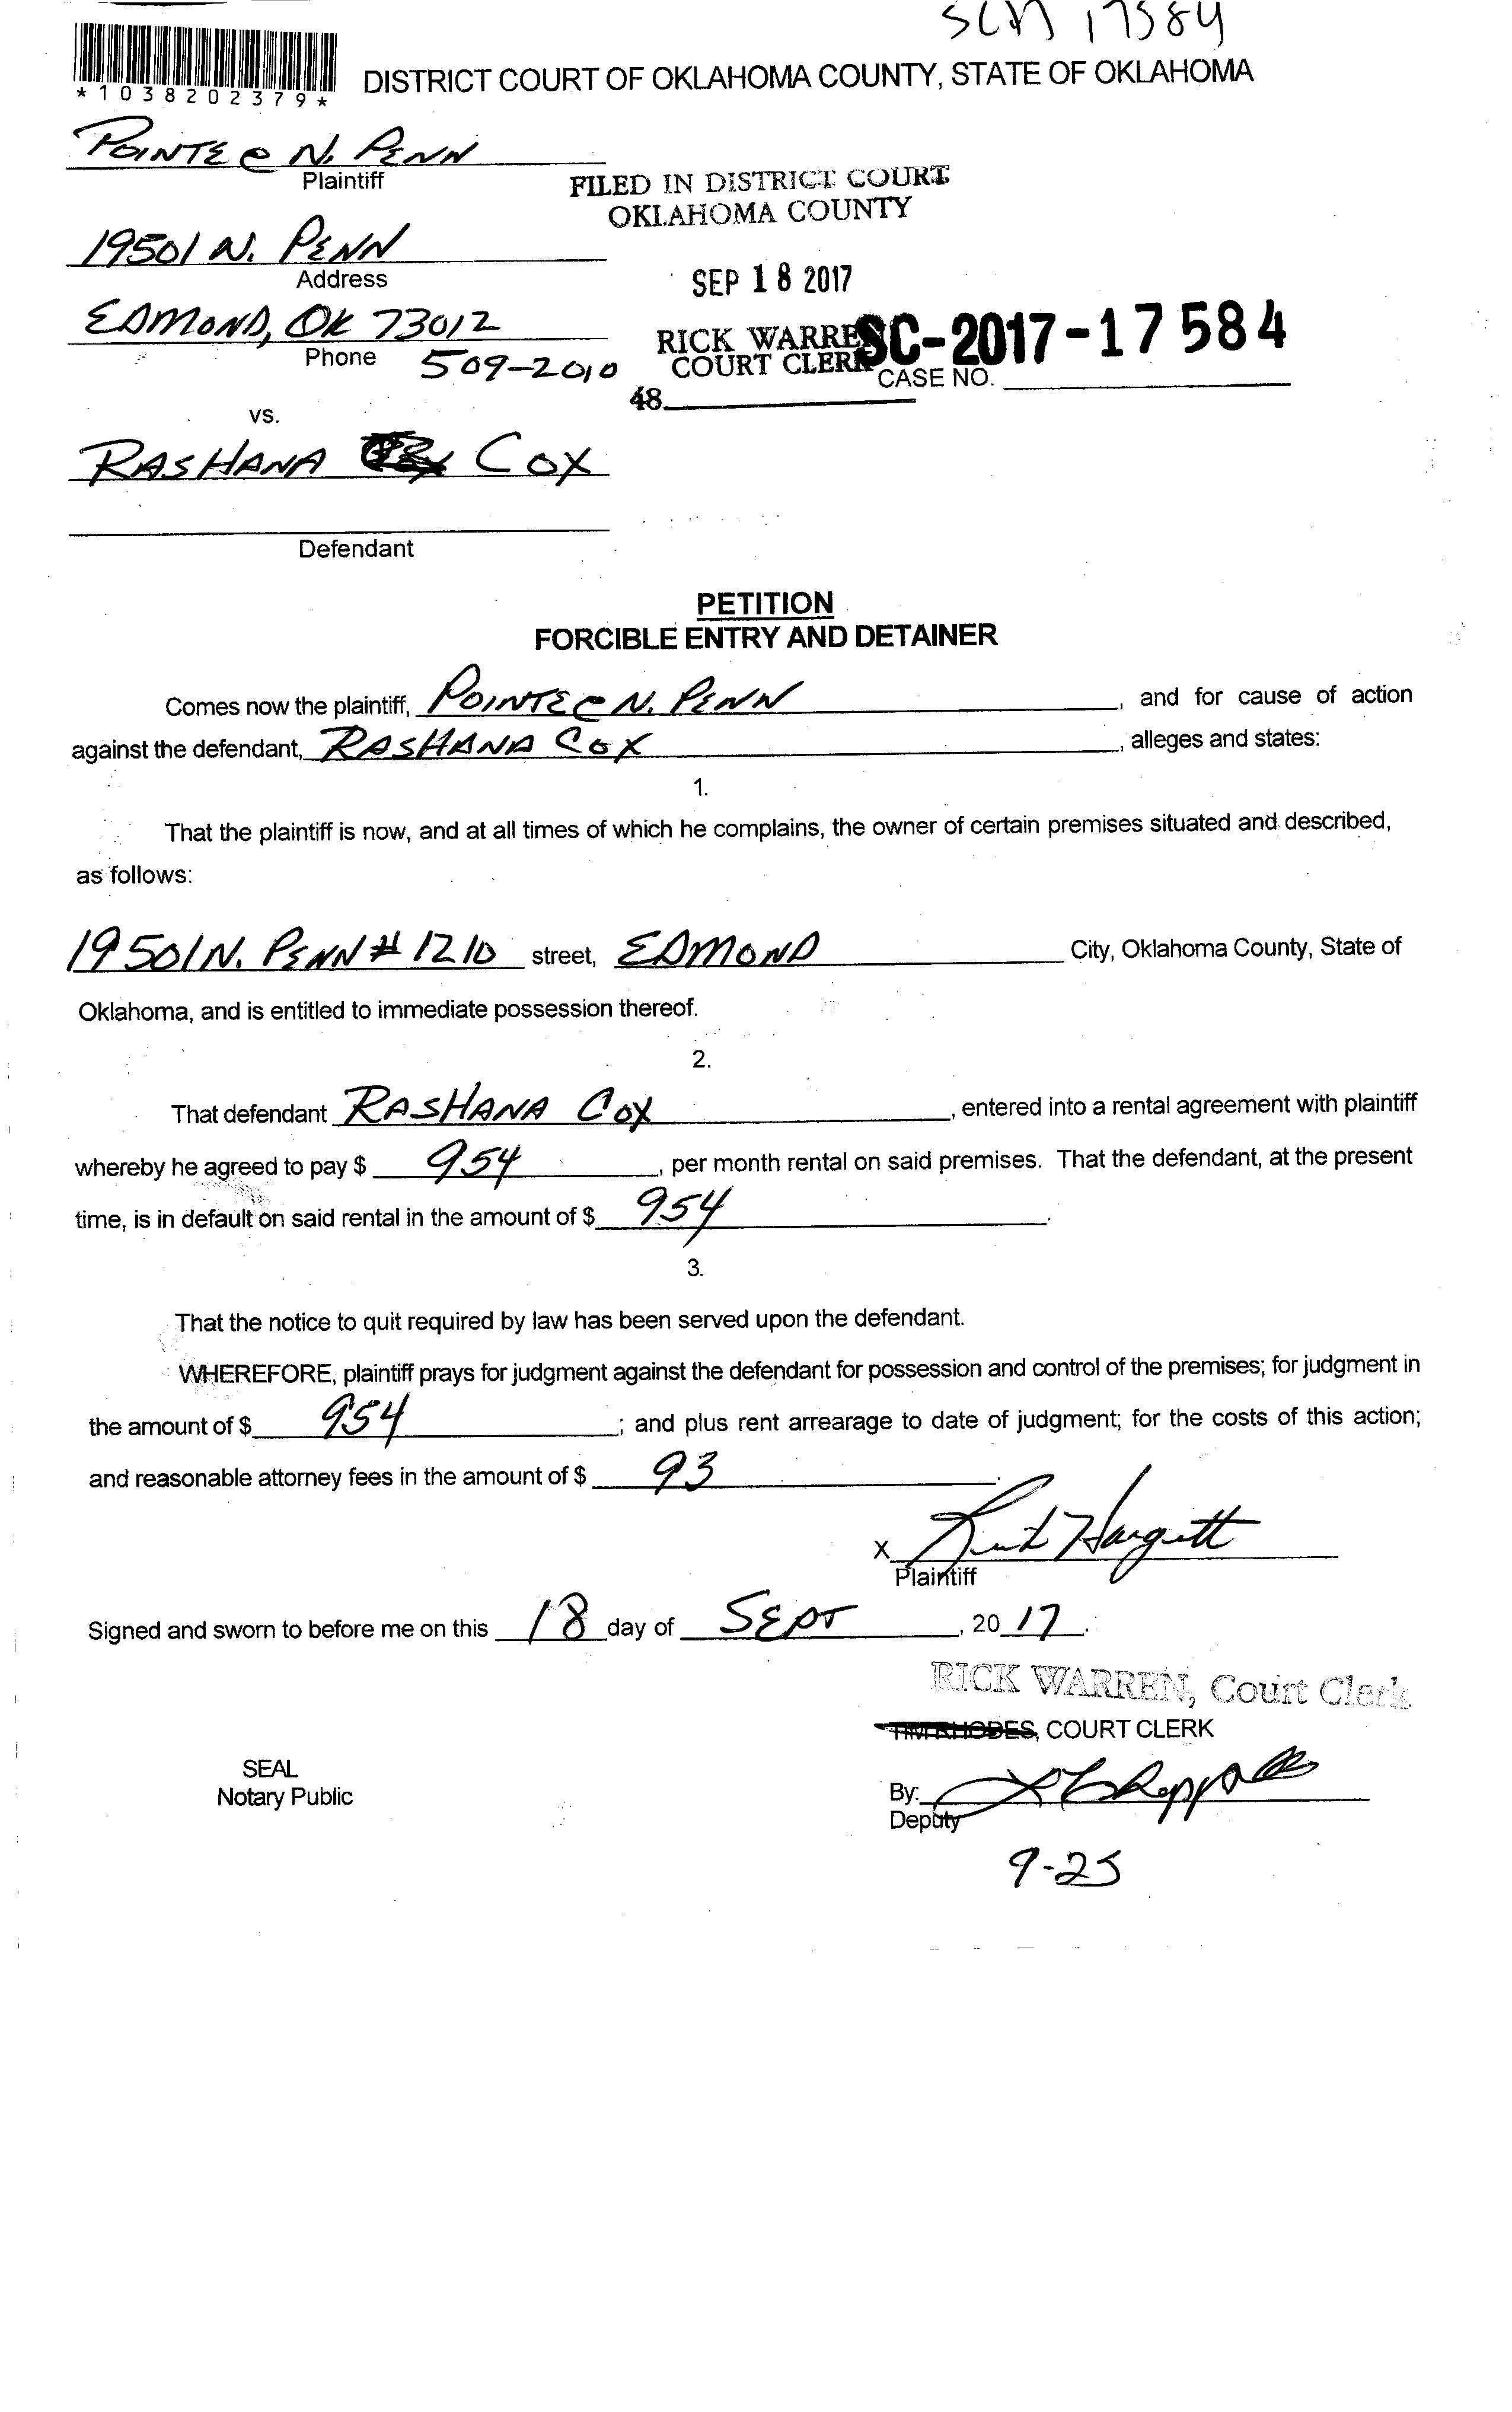 SCN 17584
*1038202379*
DISTRICT COURT OF OKLAHOMA COUNTY, STATE OF OKLAHOMA
POINTE @ N. PENN
Plaintiff
FILED IN DISTRICT COURT
OKLAHOMA COUNTY
19501 N. PENN
Address
SEP 18 2017
EDMOND, OK 73012
Phone 509-2010
RICK WARREN
COURT CLERK
SC-2017-17584
CASE NO.
48
VS.
RASHANA COX
Defendant
PETITION
FORCIBLE ENTRY AND DETAINER
Comes now the plaintiff, POINTE @ N. PENN, and for cause of action
against the defendant, RASHANA COX, alleges and states:
1.
That the plaintiff is now, and at all times of which he complains, the owner of certain premises situated and described,
as follows:
19501 N. PENN # 1210 street, EDMOND City, Oklahoma County, State of
Oklahoma, and is entitled to immediate possession thereof.
2.
That defendant RASHANA COX, entered into a rental agreement with plaintiff
whereby he agreed to pay $ 954, per month rental on said premises. That the defendant, at the present
time, is in default on said rental in the amount of $ 954.
3.
That the notice to quit required by law has been served upon the defendant.
WHEREFORE, plaintiff prays for judgment against the defendant for possession and control of the premises; for judgment in
the amount of $ 954; and plus rent arrearage to date of judgment; for the costs of this action;
and reasonable attorney fees in the amount of $ 93.
X Hargett
Plaintiff
Signed and sworn to before me on this 18 day of SEPT, 2017.
RICK WARREN, Court Clerk
TIM RHODES, COURT CLERK
SEAL
Notary Public
By:
Deputy
9-25